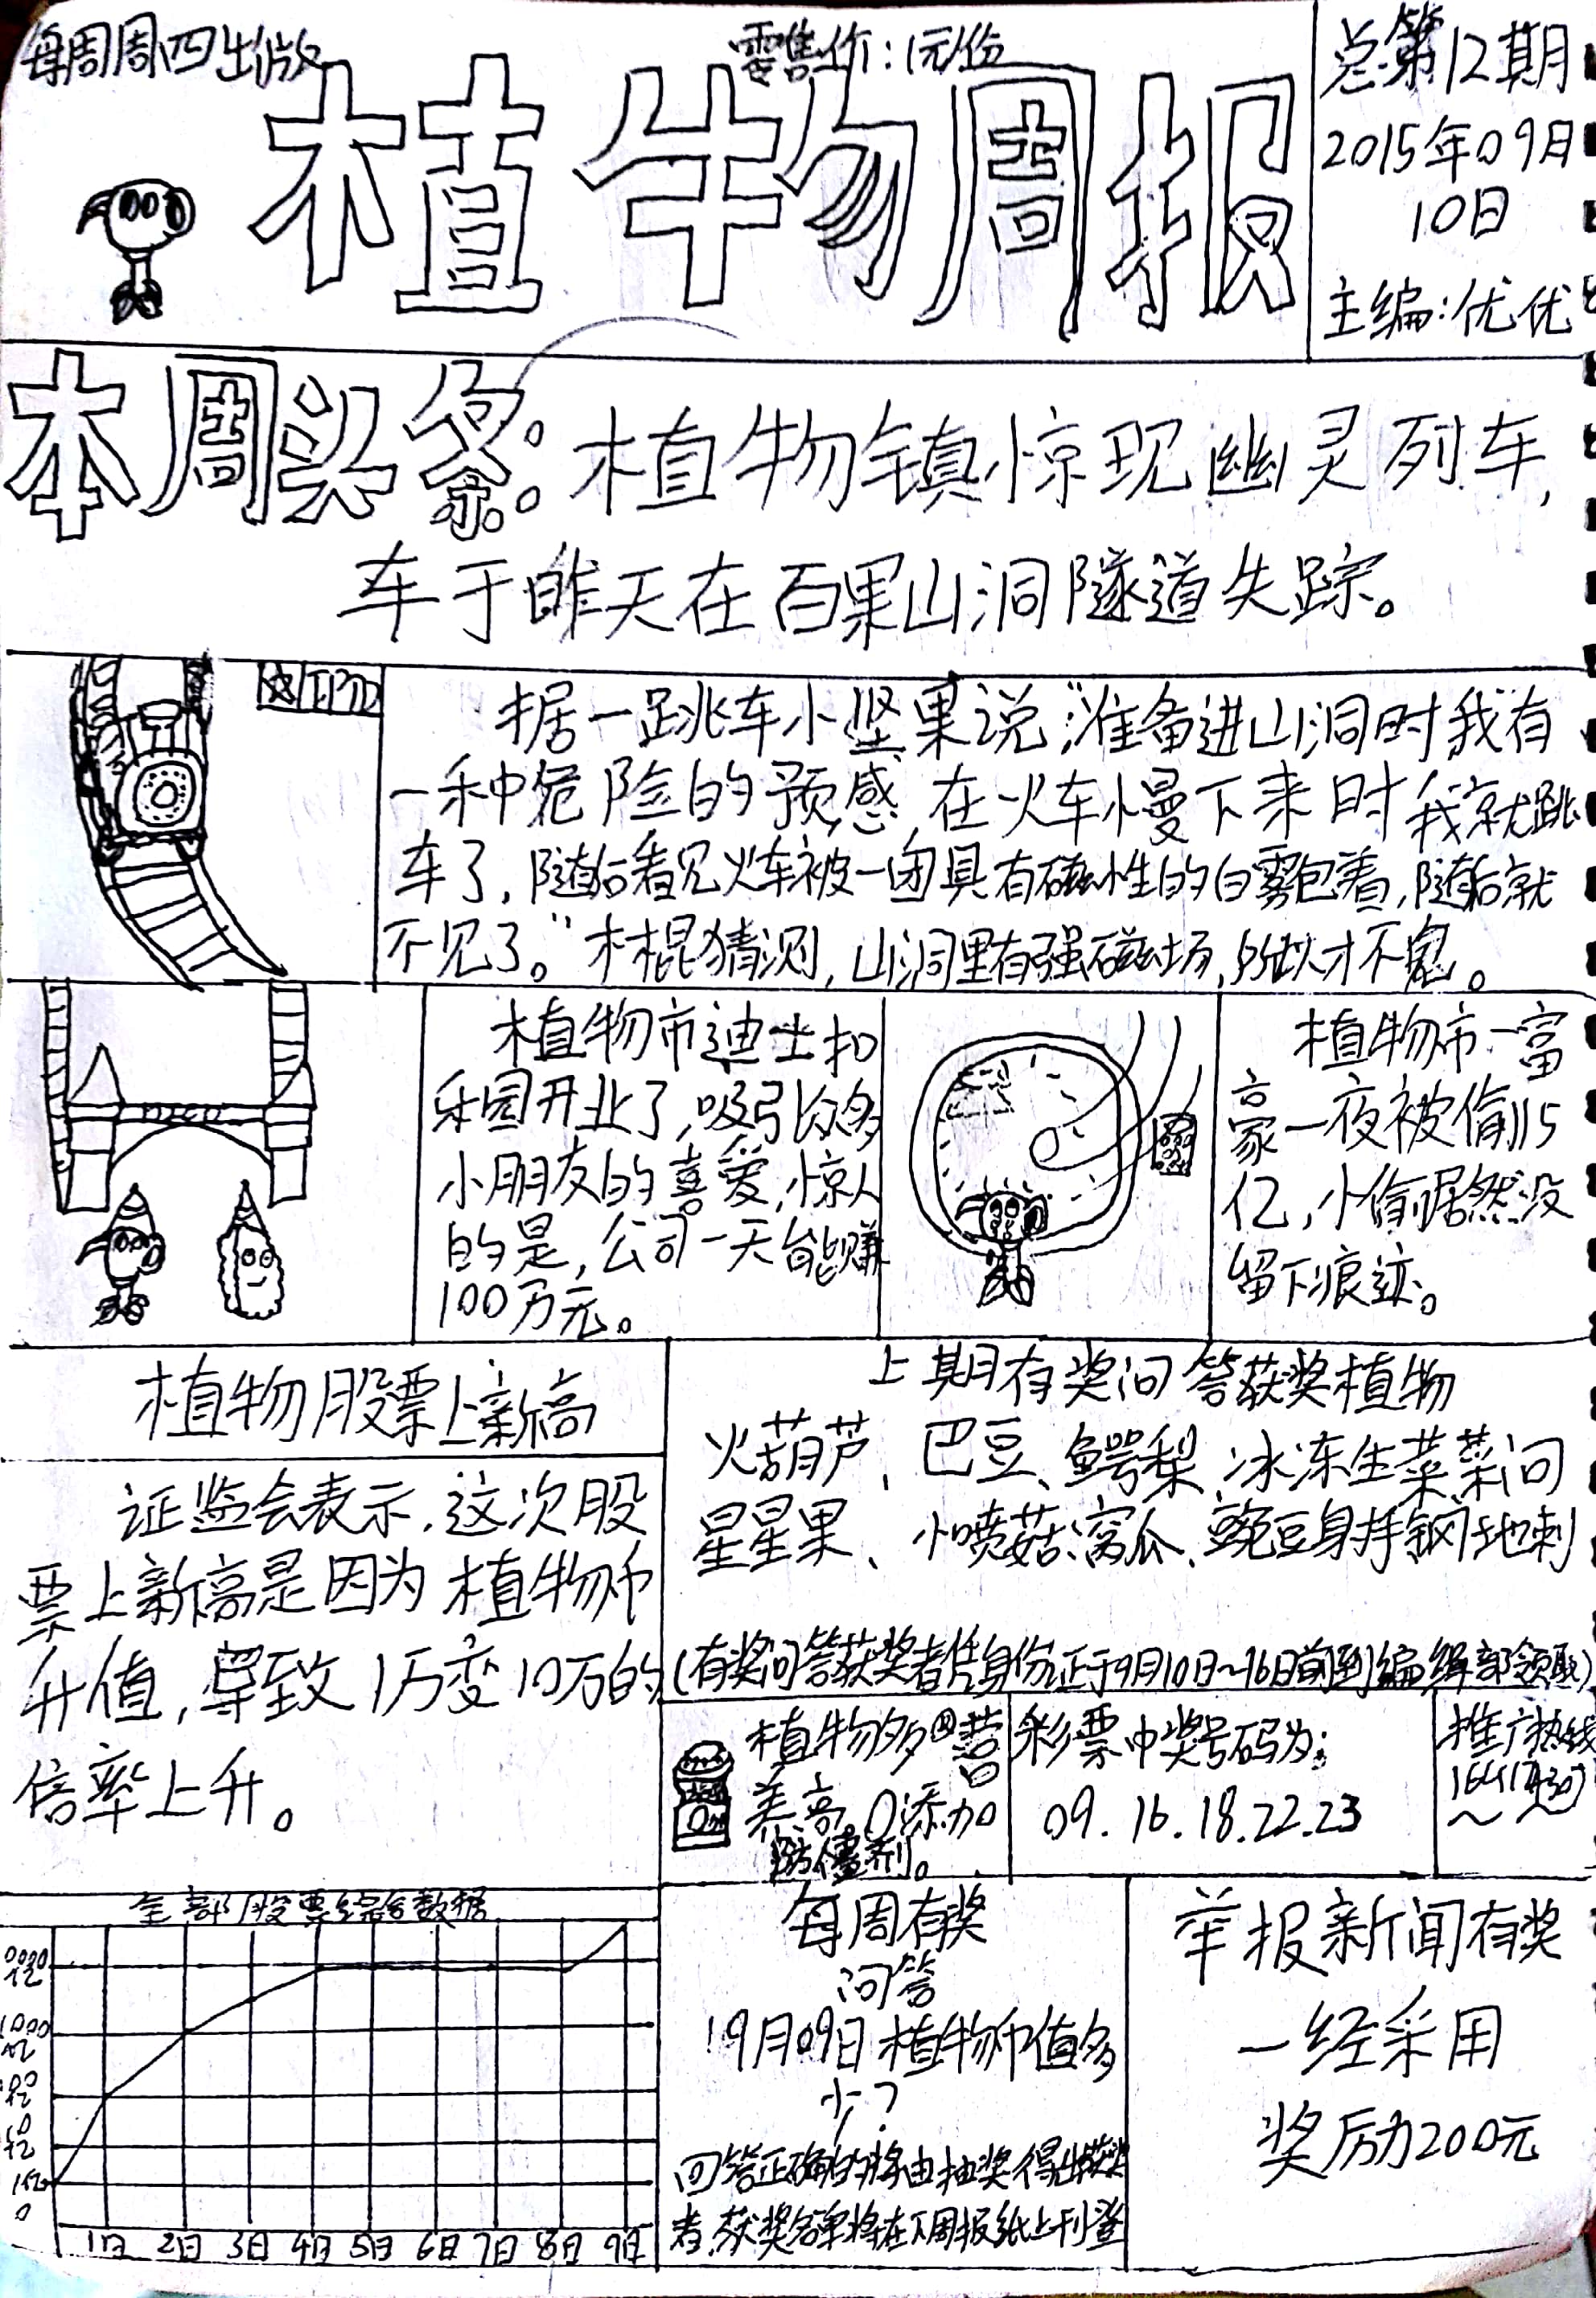 每周周四出版
零售价:1元/份
植物周报
总第12期
2015年09月
10日
主编:优优
本周头条:植物镇惊现幽灵列车,
车于昨天在百果山洞隧道失踪。
据一跳车小坚果说:"准备进山洞时我有
一种危险的预感,在火车慢下来时我就跳
车了,随后看见火车被一团具有磁性的白雾包着,随后就
不见了。"木棍猜测,山洞里有强磁场,所以才不见。
植物市迪士扣
乐园开业了,吸引众多
小朋友的喜爱,惊人
的是,公司一天能赚
100万元。
植物市一富
豪一夜被偷115
亿,小偷居然没
留下痕迹。
植物股票上新高
证监会表示,这次股
票上新高是因为植物币
升值,导致1万变10万的
倍率上升。
上期有奖问答获奖植物
火葫芦、巴豆、鳄梨、冰冻生菜、菜问
星星果、小喷菇、窝瓜、豌豆射手、钢地刺
(有奖问答获奖者凭身份证于9月10日~16日前到编缉部领取)
植物多®营
养高。0添加
防僵剂。
彩票中奖号码为:
09.16.18.22.23
推广热线
全部股票综合数据
1000
亿
1亿
0
1日 2日 3日 4日 5日 6日 7日 8日 9日
每周有奖
问答
9月09日植物币值多
少?
回答正确的将由抽奖得出获奖
者,获奖名单将在下周报纸上刊登
举报新闻有奖
一经采用
奖励200元